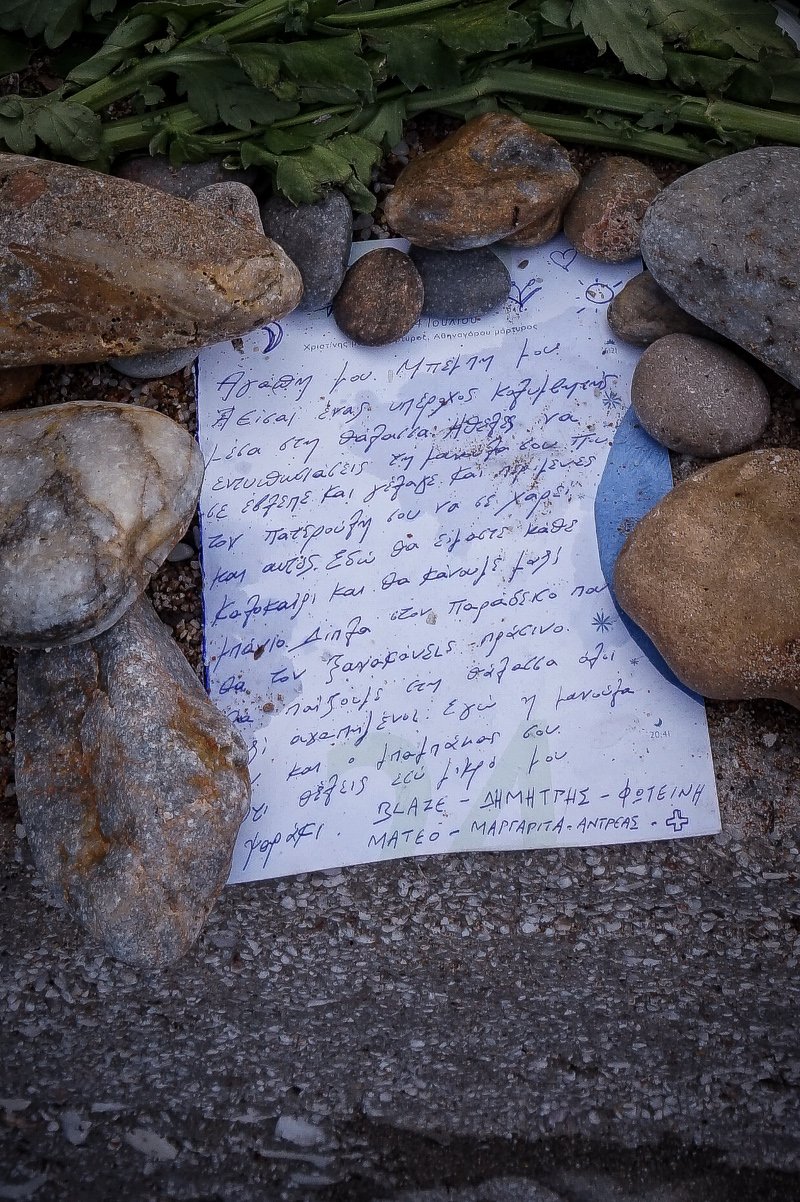 Ιουλίου
Χριστίνης μάρτυρος, Αθηναγόρου μάρτυρος
Αγάπη μου. Μπέμπη μου.
Είσαι ένας υπέροχος κολυμβητής
μέσα στη θάλασσα. Ήθελες να
εντυπωσιάσεις τη μανούλα σου που
σε έβλεπε και γέλαγε και περίμενες
τον πατερούλη σου να σε χαρεί
και αυτός. Εδώ θα είμαστε κάθε
καλοκαίρι και θα κάνουμε μαζί
μπάνιο. Δίπλα στον Παράδεισο που
θα τον ξανακάνεις πράσινο.
θα παίζουμε στη θάλασσα όλοι
αγαπημένοι. Εγώ η μανούλα
και ο μπαμπάκας σου.
ότι θέλεις εσύ μικρό μου
ψαράκι. BLAZE - ΔΗΜΗΤΡΗΣ - ΦΩΤΕΙΝΗ
ΜΑΤΕΟ - ΜΑΡΓΑΡΙΤΑ - ΑΝΤΡΕΑΣ -
20:41